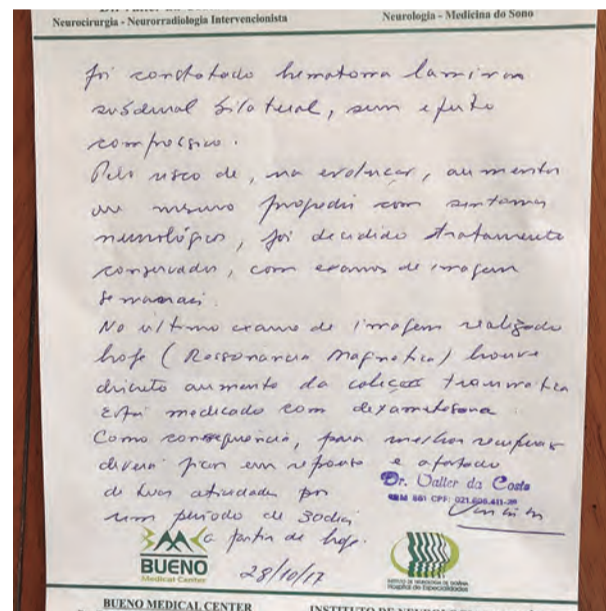 Neurocirurgia - Neurorradiologia Intervencionista
Neurologia - Medicina do Sono
foi constatado hematoma laminar
subdural bilateral, sem efeito
compressivo.
Pelo risco de, na evolução, aumentar
ou mesmo com sintomas
neurológicos, foi decidido tratamento
conservador, com exames de imagem
semanais.
No último exame de imagem realizado
hoje (Ressonancia Magnetica) houve
discreto aumento da coleção traumatica
Está medicado com dexametasona.
Como consequencia, para melhor recuperar
deverá ficar em repouso e afastado
de suas atividades por
um período de 30 dias
a partir de hoje.
Dr. Valter da Costa
28/10/17
BUENO
Medical Center
INSTITUTO DE NEUROLOGIA DE GOIÂNIA
Hospital de Especialidades
BUENO MEDICAL CENTER
INSTITUTO DE